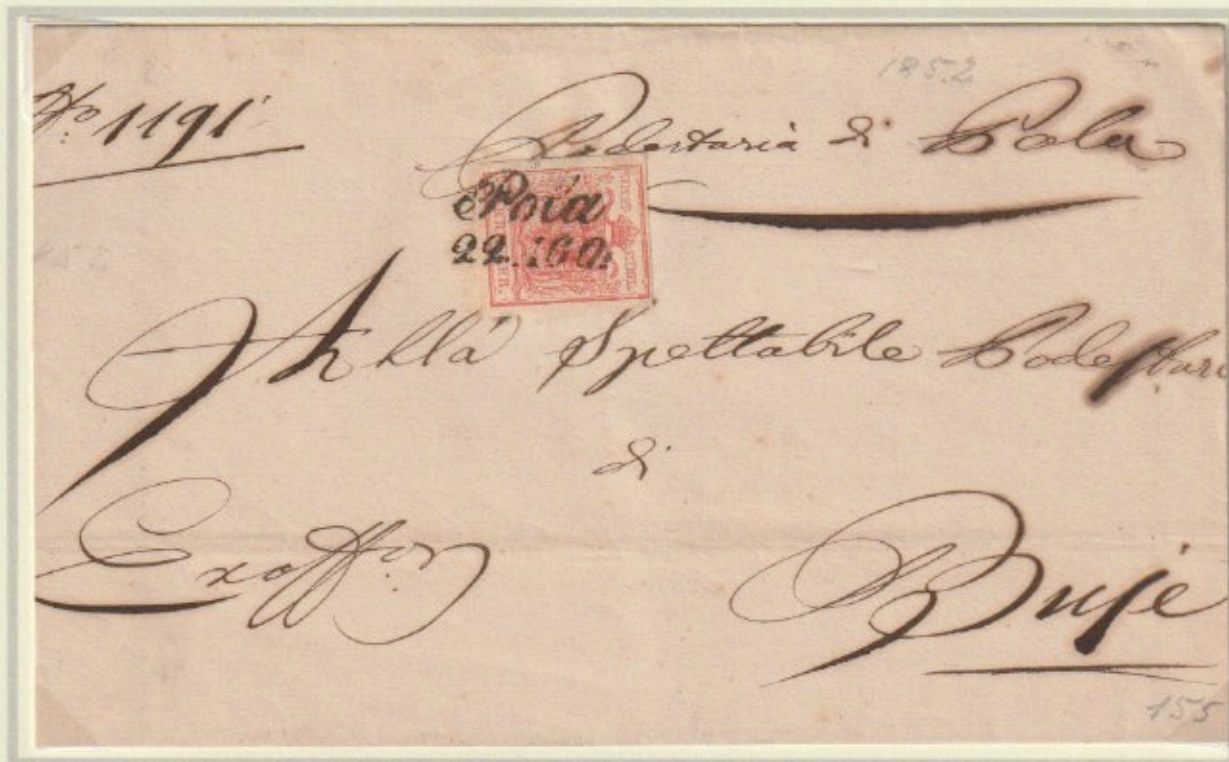 1852
No 1191
Podestaria di Pola
Pola
22. AGO.
Alla Spettabile Podestari
di
Exoffo
Buje
155